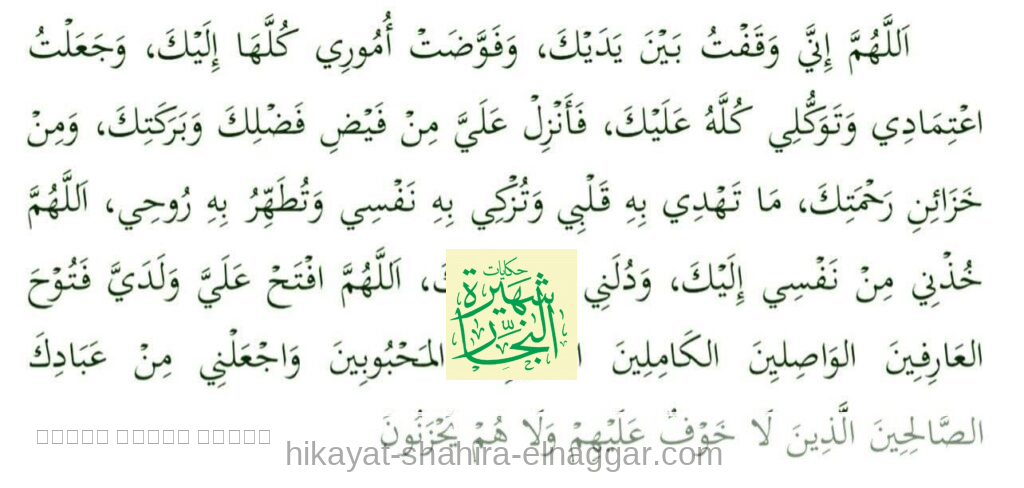 اَللَّهُمَّ إِنِّي وَقَفْتُ بَيْنَ يَدَيْكَ، وَفَوَّضَتْ أُمُورِي كُلَّهَا إِلَيْكَ، وَجَعَلْتُ
اعْتِمَادِي وَتَوَكُّلِي كُلَّهُ عَلَيْكَ، فَأَنْزِلْ عَلَيَّ مِنْ فَيْضِ فَضْلِكَ وَبَرَكَتِكَ، وَمِنْ
خَزَائِنِ رَحْمَتِكَ، مَا تَهْدِي بِهِ قَلْبِي وَتُزْكِي بِهِ نَفْسِي وَتُطَهِّرُ بِهِ رُوحِي، اَللَّهُمَّ
خُذْنِي مِنْ نَفْسِي إِلَيْكَ، وَدُلَنِي اَللَّهُمَّ افْتَحْ عَلَيَّ وَلَدَيَّ فَتُوْحَ
العَارِفِينَ الوَاصِلِينَ الكَامِلِينَ المَحْبُوبِينَ وَاجْعَلْنِي مِنْ عَبَادِكَ
الصَّالِحِينَ الَّذِينَ لَا خَوْفٌ عَلَيْهِمْ وَلَا هُمْ يَحْزَنُونَ
حكايات
شهيرة
النجار
hikayat-shahira-elnaggar.com